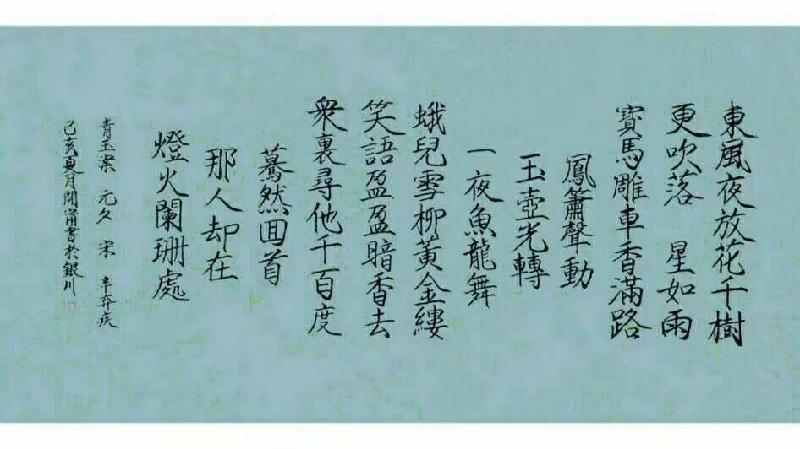 東風夜放花千樹
更吹落 星如雨
寶馬雕車香滿路
鳳簫聲動
玉壺光轉
一夜魚龍舞
蛾兒雪柳黃金縷
笑語盈盈暗香去
衆裏尋他千百度
驀然囬首
那人却在
燈火闌珊處
青玉案 元夕 宋 辛弃疾
己亥夏月閆甯書於銀川